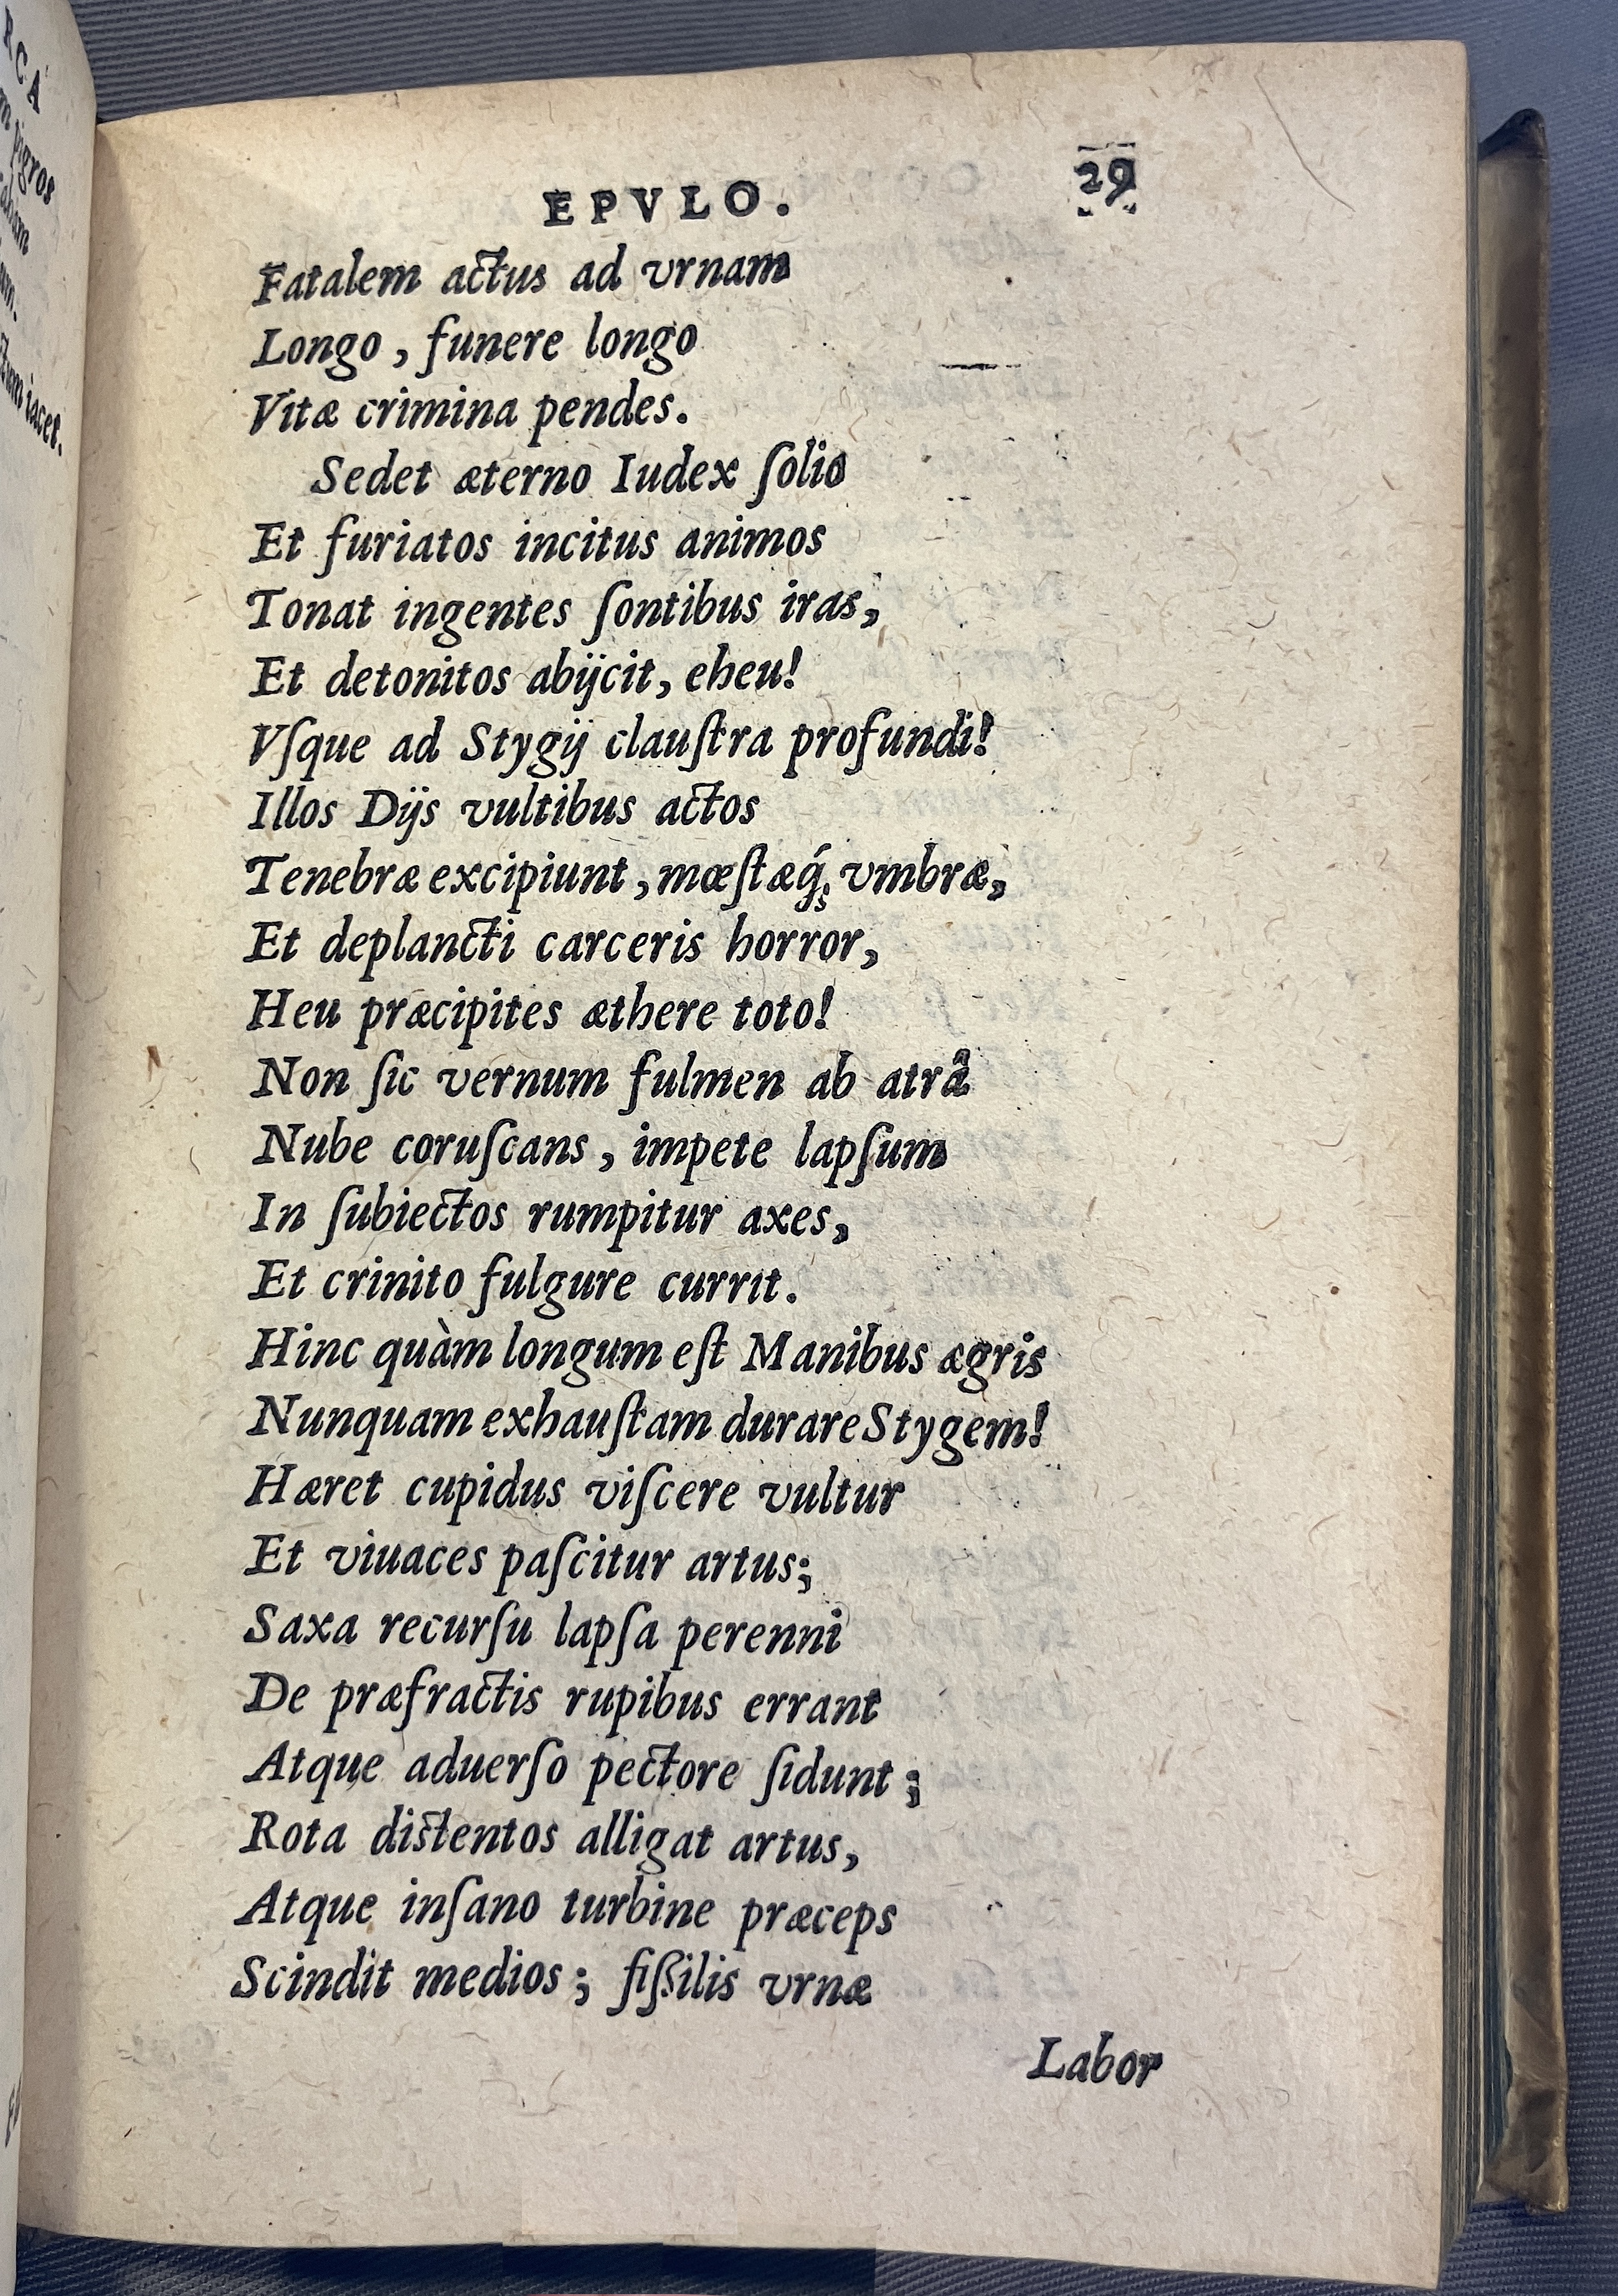 RCA
pigros
iacet.
EPVLO. 29
Fatalem actus ad vrnam
Longo, funere longo
Vitæ crimina pendes.
Sedet æterno Iudex ſolio
Et furiatos incitus animos
Tonat ingentes ſontibus iras,
Et detonitos abijcit, eheu!
Vſque ad Stygij clauſtra profundi!
Illos Dijs vultibus actos
Tenebræ excipiunt, mœſtæq́; vmbræ,
Et deplancti carceris horror,
Heu præcipites æthere toto!
Non ſic vernum fulmen ab atrâ
Nube coruſcans, impete lapſum
In ſubiectos rumpitur axes,
Et crinito fulgure currit.
Hinc quàm longum eſt Manibus ægris
Nunquam exhauſtam durare Stygem!
Hæret cupidus viſcere vultur
Et viuaces paſcitur artus;
Saxa recurſu lapſa perenni
De præfractis rupibus errant
Atque aduerſo pectore ſidunt;
Rota distentos alligat artus,
Atque inſano turbine præceps
Scindit medios; fißilis vrnæ
Labor